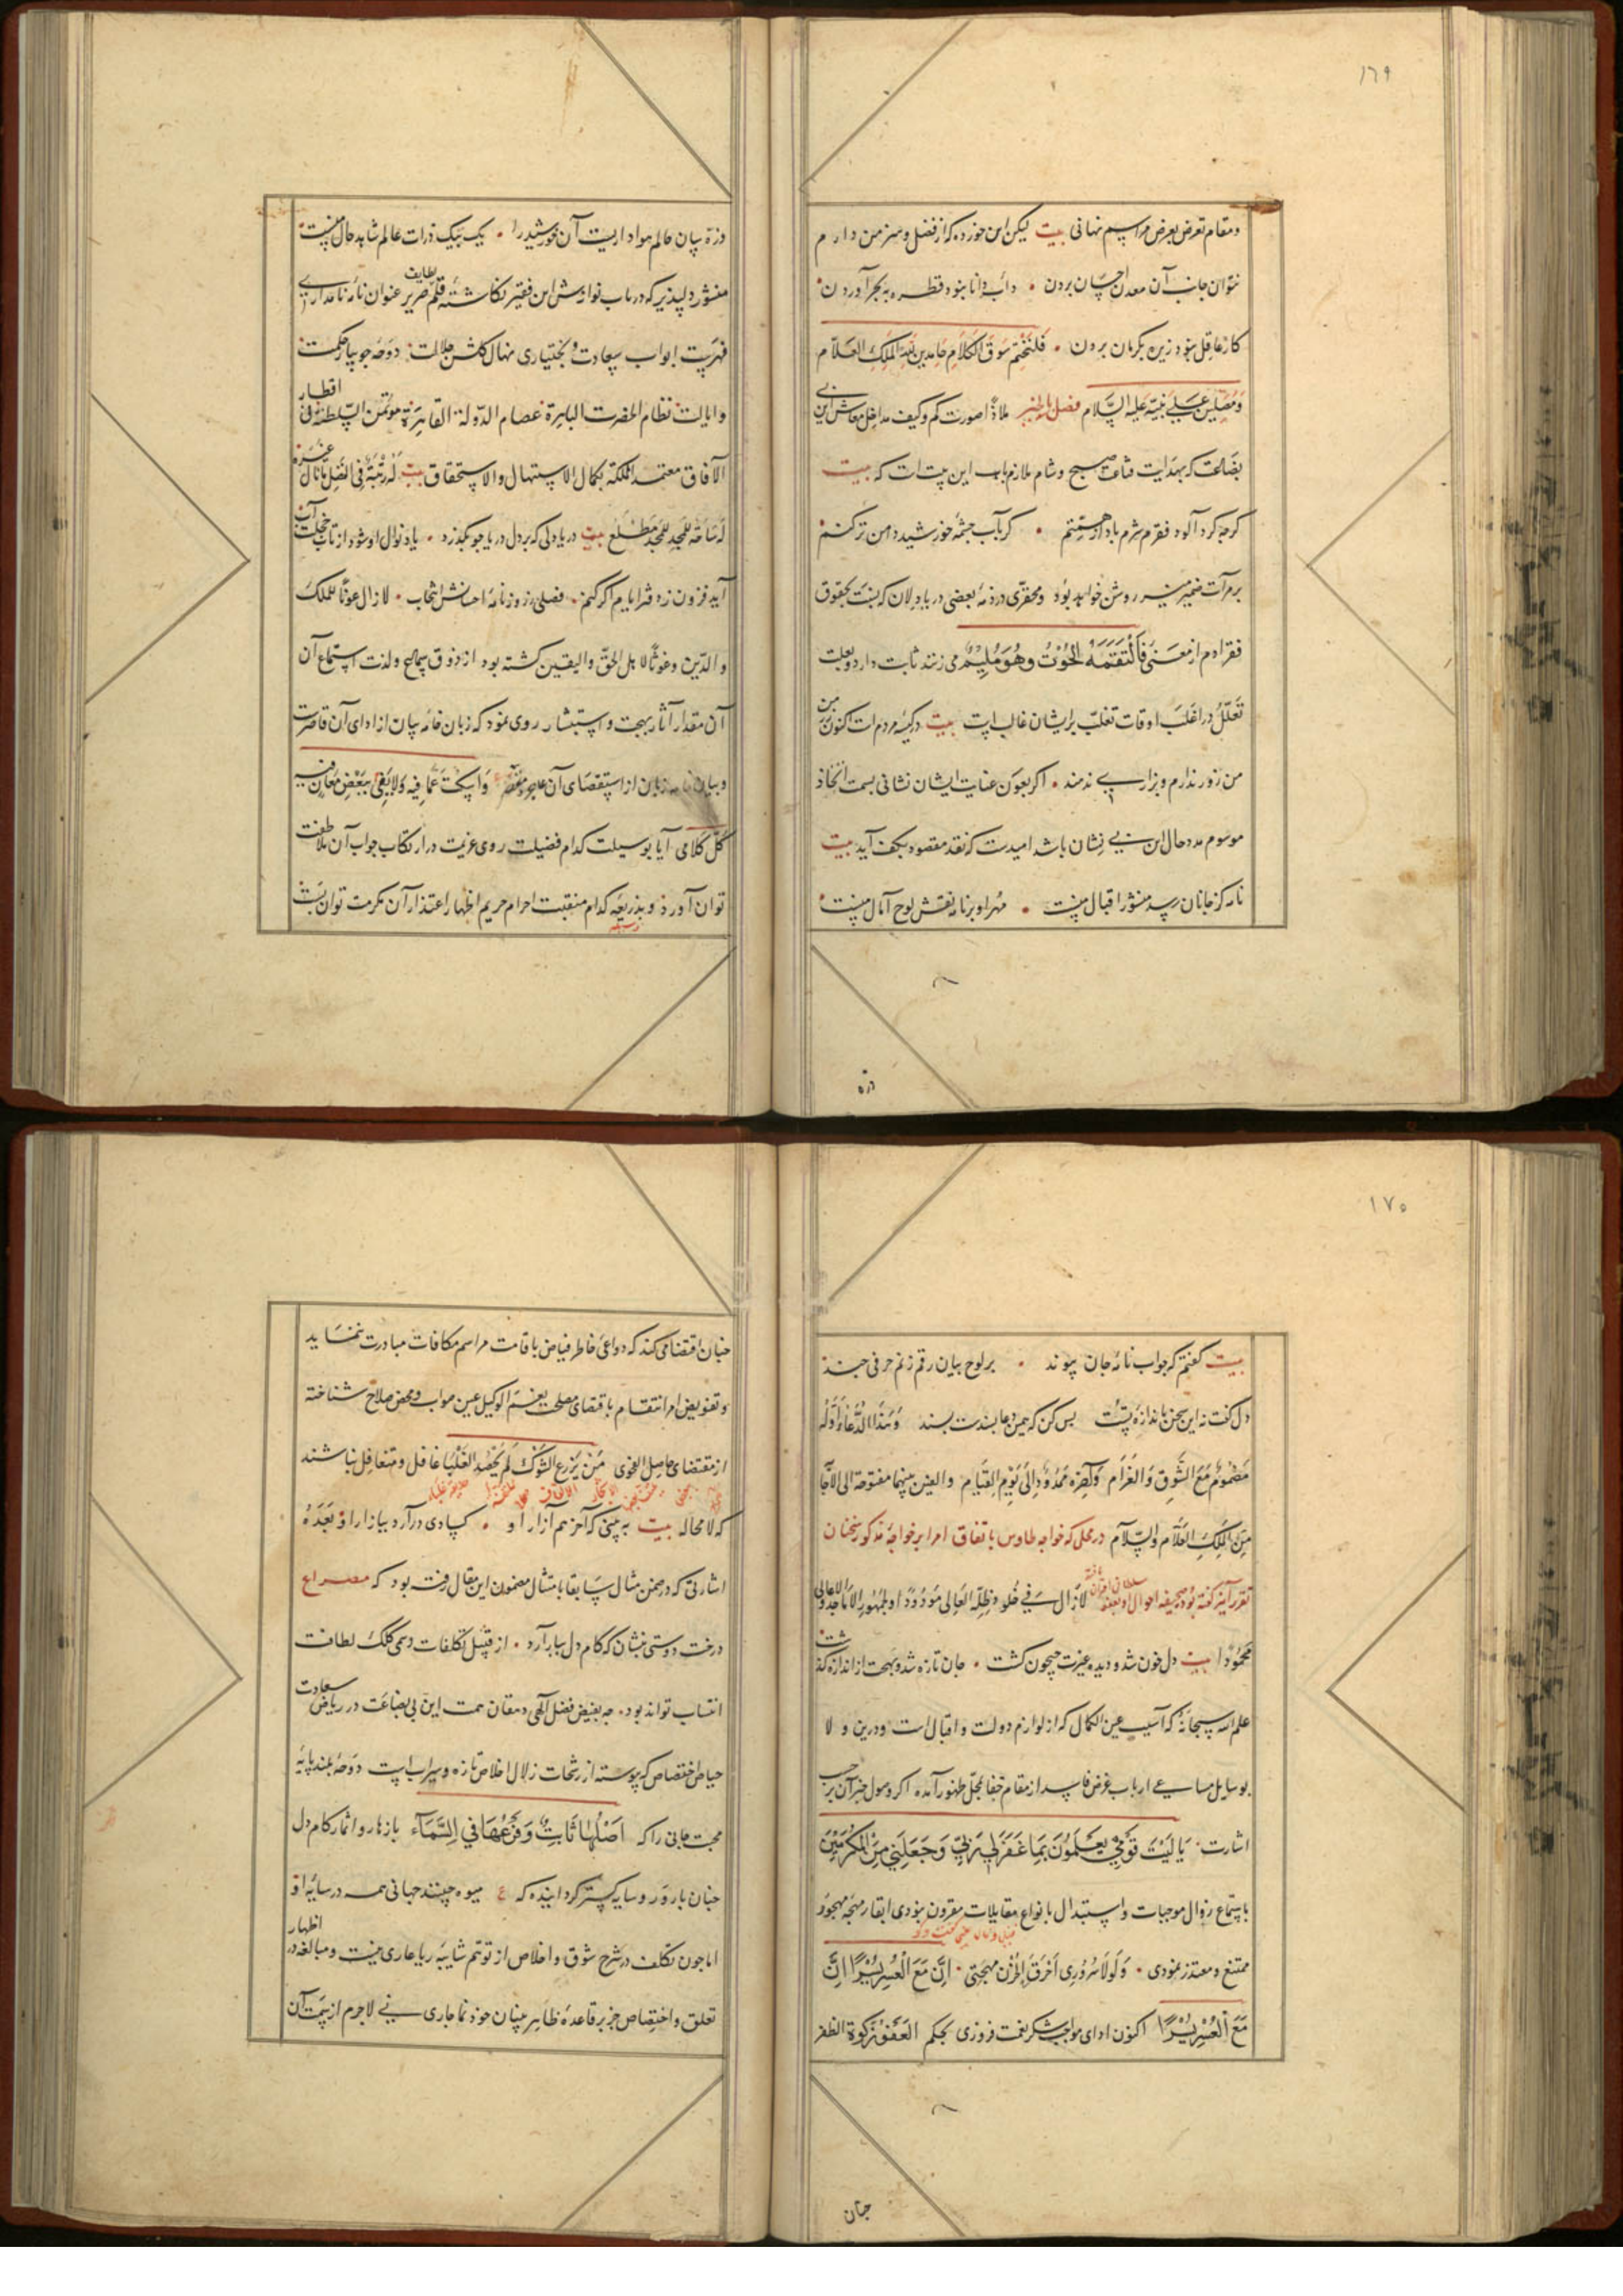 ١٦٩
ومقام تعرض بعرض مراسم نهانی بیت لیکن این خورده که از فضل وسر من دارم
نتوان جانب آن معدن احسان بردن • داب دانا نبود قطره به بحر آوردن •
کار عاقل نبود زیره بکرمان بردن • فَلْنَخْتِم سَوقَ الکَلَامِ حامدین لله المَلِکِ العَلّام
وَمُصَلِّینَ عَلَی نَبِیِّه عَلَیهِ السَّلام ملاذا صورت کم وکیف مداخل معاش این بی
بضاعت که بهدایت قناعت صبح وشام ملازم باب این بیت است که بیت
کرچه کرد آلود فقرم شرم باد از همتم • کر بآب چشمهٔ خورشید دامن تر کنم •
بر مرآت ضمیر منیر روشن خواهد بود ومحقری در ذمهٔ بعضی دریادلان که نسبت بحقوق
فقرا دم از معنی فَالْتَقَمَهُ الحُوْتُ وَهُوَ مُلِیْمٌ می زنند ثابت دارد وبعلت
تعلّل در اغلب اوقات تغلّب بر ایشان غالب است بیت در کیسهٔ مردم است اکنون زر من
من زور ندارم وبزاری ندهند • اکر بعون عنایت ایشان نشانی بسمت انخاذ
موسوم مدد حال این بی نشان باشد امیدست که نقد مقصود بکف آید بیت
نامه کز جانان رسد منشور اقبال منست • مهر او بر نامه نقش لوح آمال منست •
ذره
ذرهٔ سان حالم هوادار یست آن خورشید را • یک بیک ذرات عالم شاهد حال منست •
منشور دلپذیر که در باب نوازش این فقیر نکاشتهٔ قلم لطایف صریر عنوان نامهٔ نامداری
فهرست ابواب سعادت وبختیاری نهال کلشن جلالت • دوحهٔ جویبار حکمت •
وایالت • نظام الحضرت الباهرة عصام الدّولة القاهرة مؤتمن السلطنة فی اقطار
الآفاق معتمد المملکة بکمال الاستیهال والاستحقاق بیت لَهُ رُتْبَةٌ فِی الفَضْلِ مَا نَالَ غیره
لَهُ سَاحَةٌ لِلْمَجْدِ لِلْمَجْدِ مَطْلَع بیت دریادلی که بر دل دریا چو بکذرد • یاد نوال او شود از تاب خجلت آب
آید فزون زدفتر ایام اکر کنم • فصلی ز روزنامهٔ احسانش انتخاب • لازال عونًا للملک
والدّین وغوثًا لاهل الحقّ والیقین کشته بود از ذوق سماع ولذت استماع آن
آن مقدار آثار بهجت واستبشار روی نمود که زبان خامهٔ بیان از ادای آن قاصرست
وبیان زبان از استقصای آن عاجز ومقصر ع وَاسْکُتْ عَمَّا فِیهِ وَلَا یَفِی بِبَعْضِ مَعَانِیهِ
کُلُّ کَلَامِی • آیا بوسیلت کدام فضیلت روی عزیمت در ارتکاب جواب آن ملاطفت
توان آورد وبذریعهٔ کدام منقبت احرام حریم اظهار اعتذار آن مکرمت توان بست
وسیله
١٧٠
بیت کفتم که جواب نامهٔ جان پیوند • بر لوح بیان رقم زنم حرفی چند
دل کفت نه این سخن باندازهٔ تست بس کن که همین دعا پسندست پسند وَهَذَا الدُّعَاءُ أَوَّلُهُ
مَضْمُومٌ مَعَ الشَّوقِ وَالغَرَام وَآخِرُه مَمْدُودٌ اِلَی یَوْمِ القِیَام والعین بینهما مفتوحة الی الآجا
مِنَ المَلِکِ العَلَّام والسَّلام در محلی که خواجه طاوس باتفاق امرا بر خواجهٔ مذکور سخنان
تقرر آمیز کفته بود صحیفه احوال او بعفو سلطانی اقتران یافته لازال سَ فی خُلودِ ظِلِّهِ العَالِی مَوْدُودًا وبِجُمْهُورِ الاَمَاجِدِ والاعالی
مَحْمُودًا بیت دل خون شد ودیده عبرت جیحون کشت • جان تازه شد وبهجت از اندازه کذشت
علم الله سبحانه که آسیب عین الکمال که از لوازم دولت واقبال است ودرین ولا
بوسایل مساعی ارباب غرض فاسد از مقام خفا بمحل ظهور آمده اکر وصول خبر آن بر حسب
اشارت • یَا لَیْتَ قَوْمِی یَعْلَمُونَ بِمَا غَفَرَلِی رَبِّی وَجَعَلَنِی مِنَ المُکْرَمِیْنَ
باستماع زوال موجبات واستبدال بانواع مقابلات مقرون نبودی ابقاء مهجهٔ مهجور
ممتنع ومعتذر نمودی • وَلَولَا سُرُورِی اَحْرَقَ الحُزْنُ مُهْجَتِی • اِنَّ مَعَ الْعُسْرِ یُسْرًا اِنَّ
مَعَ الْعُسْرِ یُسْرًا اکنون ادای مواجب شکر نعمت فیروزی بحکم العَفْوُ زَکوة الظفر
چنان
چنان اقتضا می کند که دواعی خاطر فیاض باقامت مراسم مکافات مبادرت ننماید
وتفویض امر انتقام باقتضای مصلحت نِعْمَ الوکیل عین صواب ومحض صلاح شناخته
از مقتضای حاصل الفحوی مَنْ یَزْرَعِ الشَّوْکَ لَمْ یَحْصُدِ العِنَبَا غافل ومتغافل نباشند
که لامحاله بیت به بینی که آخر هم آزار او • کسادی در آرد ببازار او بَعْدَهُ
اشارتی که در ضمن مثال سابقا بامتثال مضمون این مقال رفته بود که مصراع
درخت دوستی بنشان که کام دل ببار آرد • از قبیل تکلفات رسمی کلک لطافت
انتساب تواند بود • چه بفیض فضل آلهی دهقان همت این بی بضاعت در ریاض سعادت
حیاض اختصاص که پیوسته از رشحات زلال اخلاص تازه وسیراب است دوحهٔ بلند پایهٔ
محبت جانی را که اَصْلُهَا ثَابِتٌ وَفَرْعُهَا فِی السَّمَآءِ بازهار واثمار کام دل
چنان بارور وسایه کستر کردانیده که ع میوه چینند جهانی همه در سایهٔ او
اما چون تکلف در شرح شوق واخلاص از توهم شایبهٔ ریا عاری نیست ومبالغه در اظهار
تعلق واختصاص جز بر قاعدهٔ ظاهر بینان خود نما جاری نی لاجرم از سمت آن